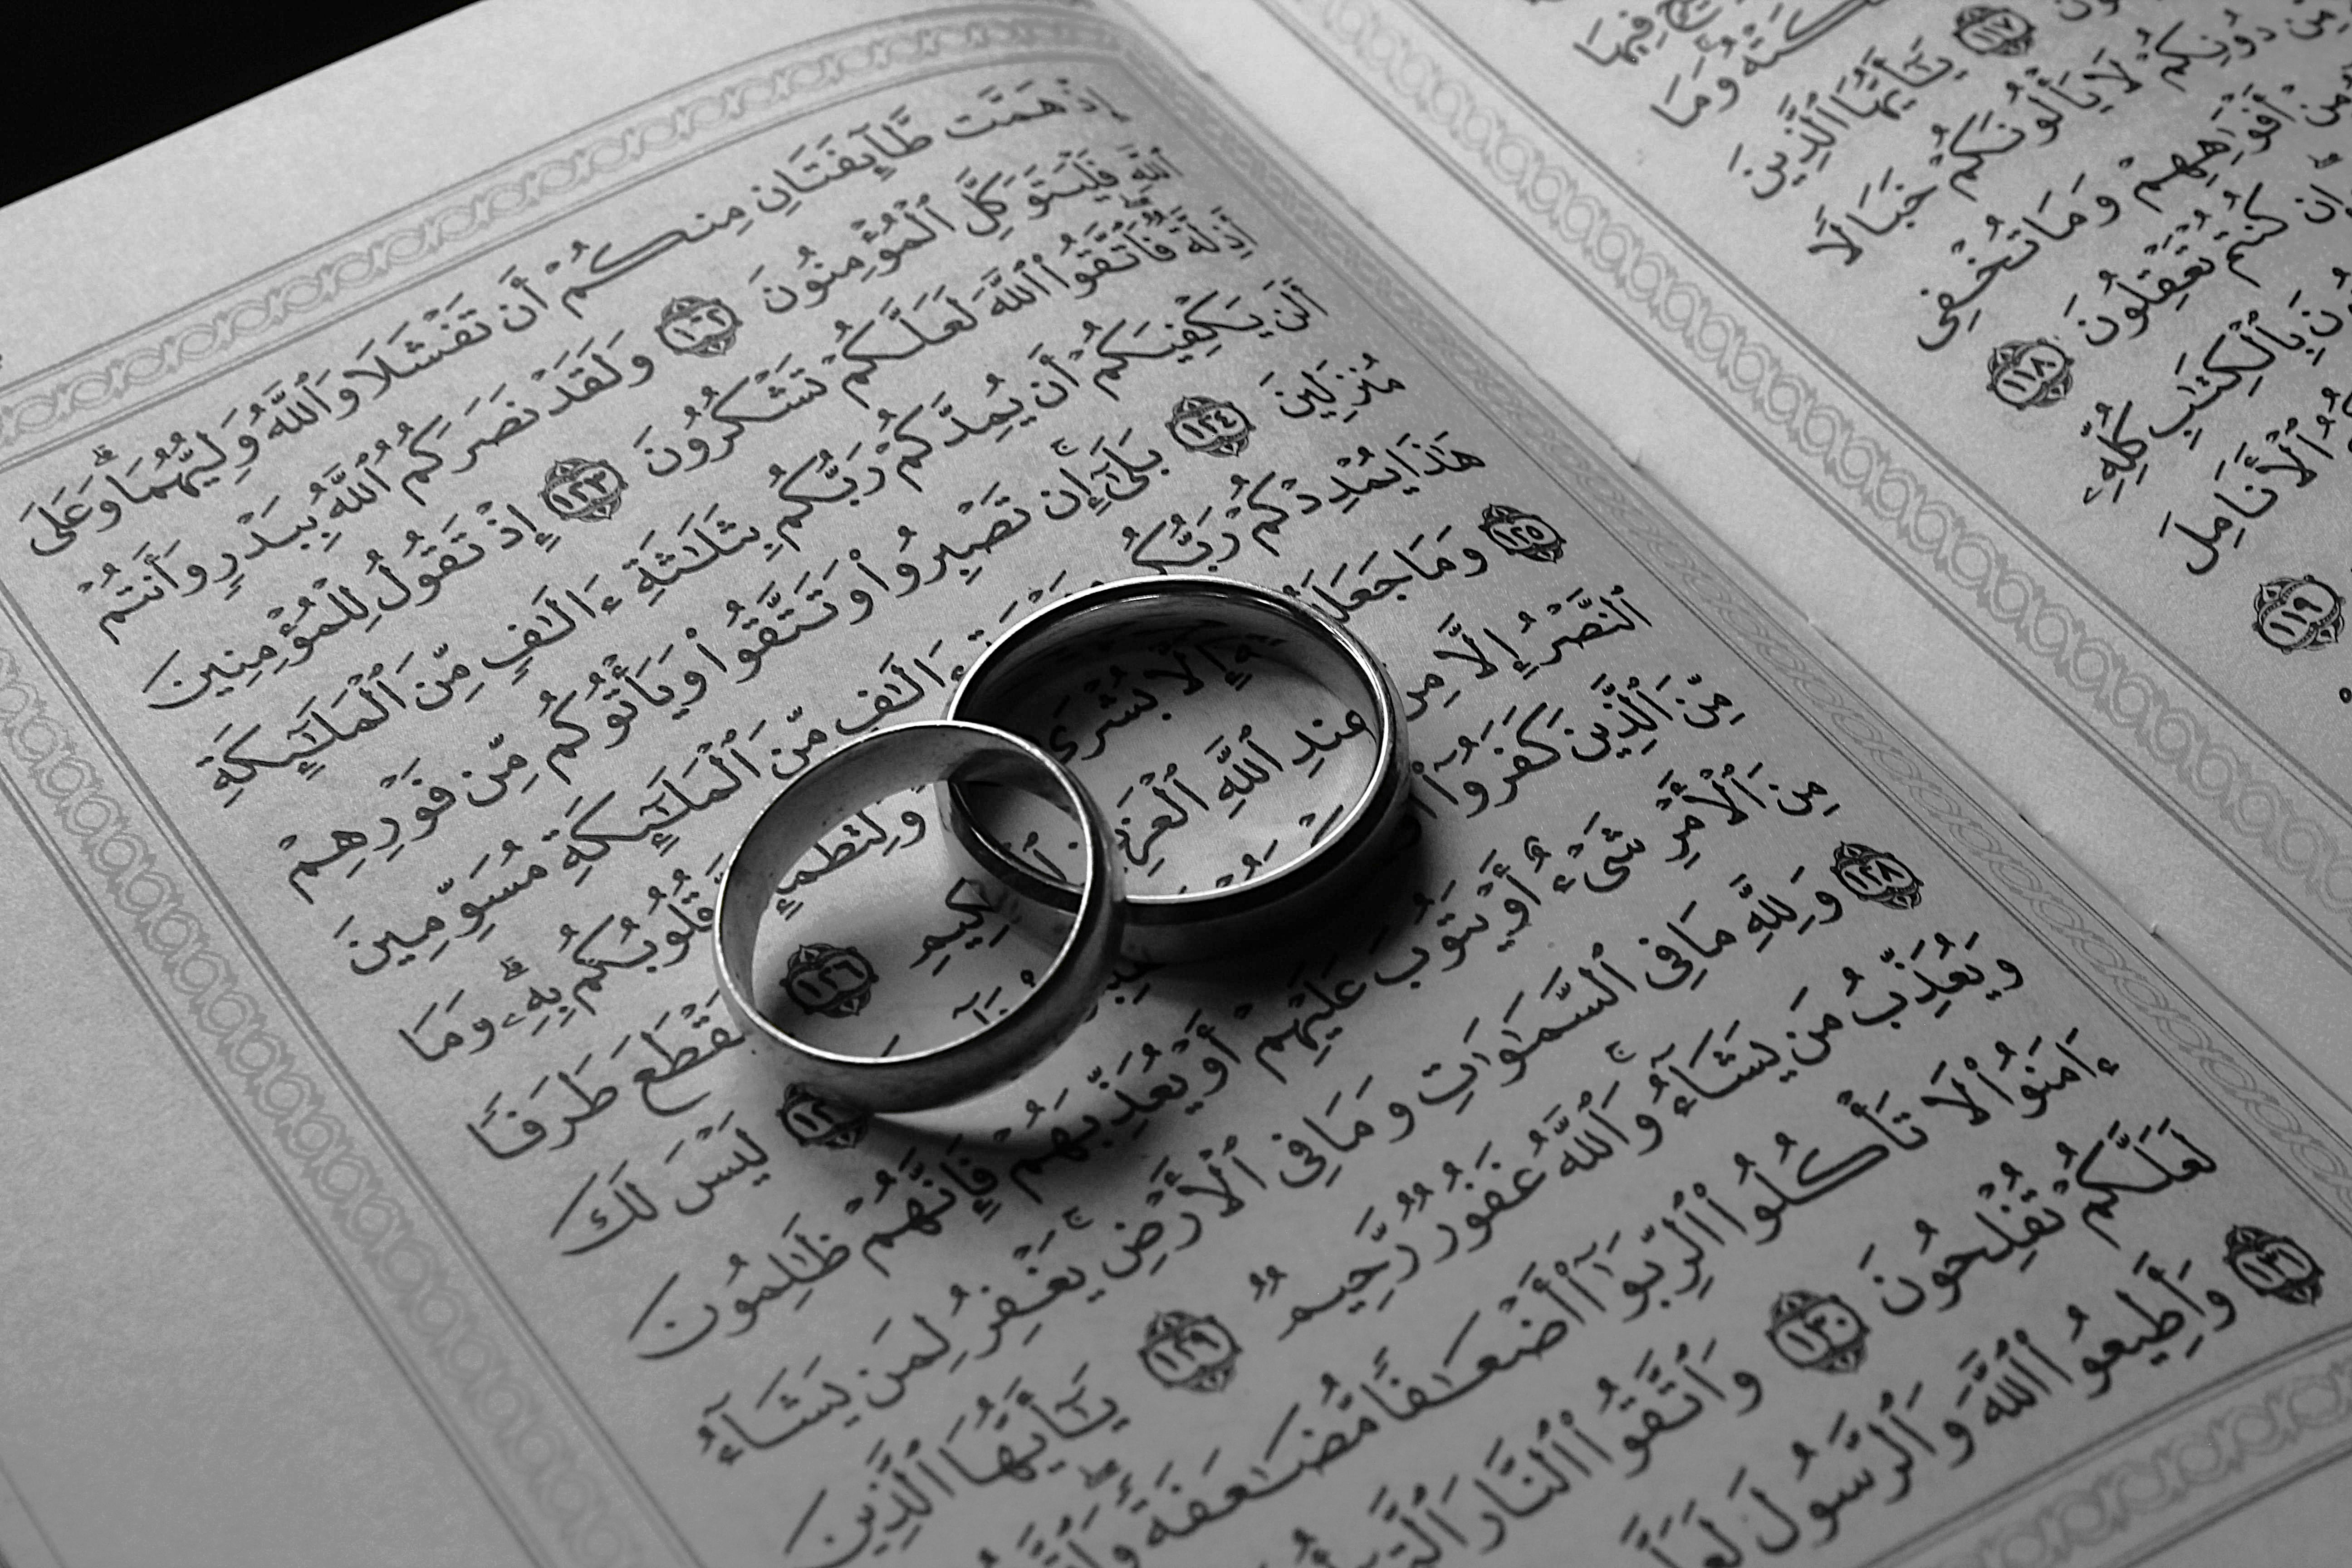 فِيهَا
وَمَا
١١٧ يَـٰٓأَيُّهَا ٱلَّذِينَ
مِّن دُونِكُمْ لَا يَأْلُونَكُمْ خَبَالًا
مِنْ أَفْوَٰهِهِمْ وَمَا تُخْفِى
إِن كُنتُمْ تَعْقِلُونَ ١١٨
بِٱلْكِتَـٰبِ كُلِّهِۦ
ٱلْأَنَامِلَ
١١٩
إِذْ هَمَّت طَّآئِفَتَانِ مِنكُمْ أَن تَفْشَلَا وَٱللَّهُ وَلِيُّهُمَا ۗ وَعَلَى
ٱللَّهِ فَلْيَتَوَكَّلِ ٱلْمُؤْمِنُونَ ١٢٢ وَلَقَدْ نَصَرَكُمُ ٱللَّهُ بِبَدْرٍ وَأَنتُمْ
أَذِلَّةٌ ۖ فَٱتَّقُوا۟ ٱللَّهَ لَعَلَّكُمْ تَشْكُرُونَ ١٢٣ إِذْ تَقُولُ لِلْمُؤْمِنِينَ
أَلَن يَكْفِيَكُمْ أَن يُمِدَّكُمْ رَبُّكُم بِثَلَـٰثَةِ ءَالَـٰفٍ مِّنَ ٱلْمَلَـٰٓئِكَةِ
مُنزَلِينَ ١٢٤ بَلَىٰٓ ۚ إِن تَصْبِرُوا۟ وَتَتَّقُوا۟ وَيَأْتُوكُم مِّن فَوْرِهِمْ
هَـٰذَا يُمْدِدْكُمْ رَبُّكُم ءَالَـٰفٍ مِّنَ ٱلْمَلَـٰٓئِكَةِ مُسَوِّمِينَ
١٢٥ وَمَا جَعَلَهُ إِلَّا بُشْرَىٰ وَلِتَطْمَئِنَّ قُلُوبُكُم بِهِۦ ۗ وَمَا
ٱلنَّصْرُ إِلَّا مِنْ عِندِ ٱللَّهِ ٱلْعَزِيزِ ٱلْحَكِيمِ ١٢٦ لِيَقْطَعَ طَرَفًا
مِّنَ ٱلَّذِينَ كَفَرُوٓا۟ ١٢٧ لَيْسَ لَكَ
مِنَ ٱلْأَمْرِ شَىْءٌ أَوْ يَتُوبَ عَلَيْهِمْ أَوْ يُعَذِّبَهُمْ فَإِنَّهُمْ ظَـٰلِمُونَ
١٢٨ وَلِلَّهِ مَا فِى ٱلسَّمَـٰوَٰتِ وَمَا فِى ٱلْأَرْضِ ۚ يَغْفِرُ لِمَن يَشَآءُ
وَيُعَذِّبُ مَن يَشَآءُ ۚ وَٱللَّهُ غَفُورٌ رَّحِيمٌ ١٢٩ يَـٰٓأَيُّهَا ٱلَّذِينَ
ءَامَنُوا۟ لَا تَأْكُلُوا۟ ٱلرِّبَوٰٓا۟ أَضْعَـٰفًا مُّضَـٰعَفَةً ۖ
لَعَلَّكُمْ تُفْلِحُونَ ١٣٠ وَٱتَّقُوا۟ ٱلنَّارَ ٱلَّتِىٓ
١٣١ وَأَطِيعُوا۟ ٱللَّهَ وَٱلرَّسُولَ